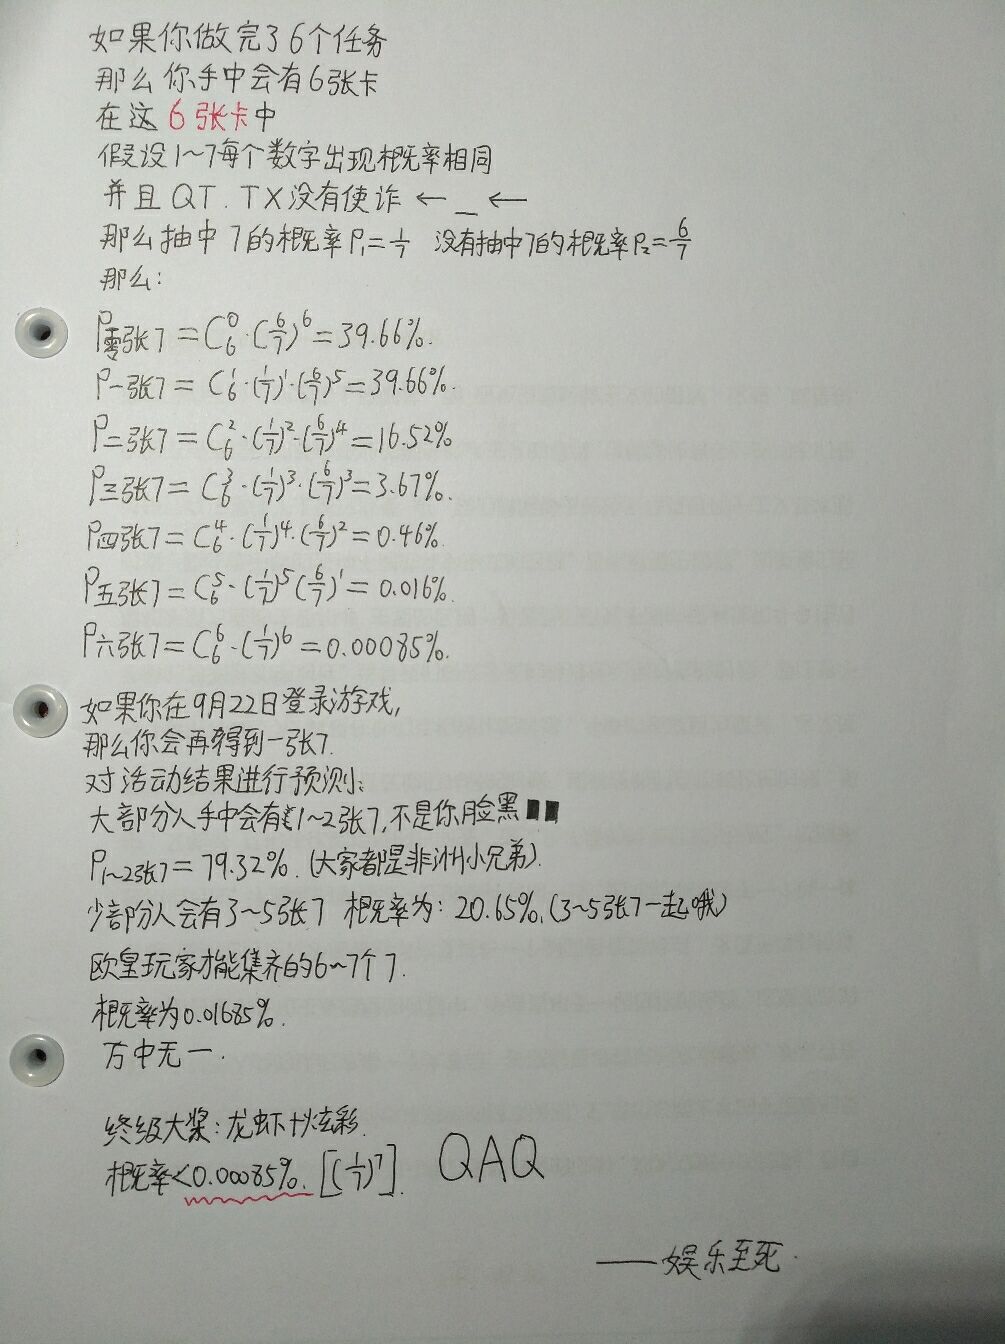 如果你做完了6个任务
那么你手中会有6张卡
在这6张卡中
假设1~7每个数字出现概率相同
并且QT.TX没有使诈 ← _ ←
那么抽中7的概率P₁=1/7 没有抽中7的概率P₂=6/7
那么:
P零张7=C₆⁰·(6/7)⁶=39.66%.
P一张7=C₆¹·(1/7)¹·(6/7)⁵=39.66%.
P二张7=C₆²·(1/7)²·(6/7)⁴=16.52%
P三张7=C₆³·(1/7)³·(6/7)³=3.67%.
P四张7=C₆⁴·(1/7)⁴·(6/7)²=0.46%.
P五张7=C₆⁵·(1/7)⁵(6/7)¹=0.016%
P六张7=C₆⁶·(1/7)⁶=0.00085%.
如果你在9月22日登录游戏,
那么你会再得到一张7.
对活动结果进行预测:
大部分人手中会有1~2张7,不是你脸黑
P1~2张7=79.32%.(大家都是非洲小兄弟).
少部分人会有3~5张7 概率为:20.65%.(3~5张7一起哦)
欧皇玩家才能集齐的6~7个7.
概率为0.01685%.
万中无一.
终级大奖:龙虾+炫彩.
概率<0.00085%.[(1/7)⁷]. QAQ
——娱乐至死.